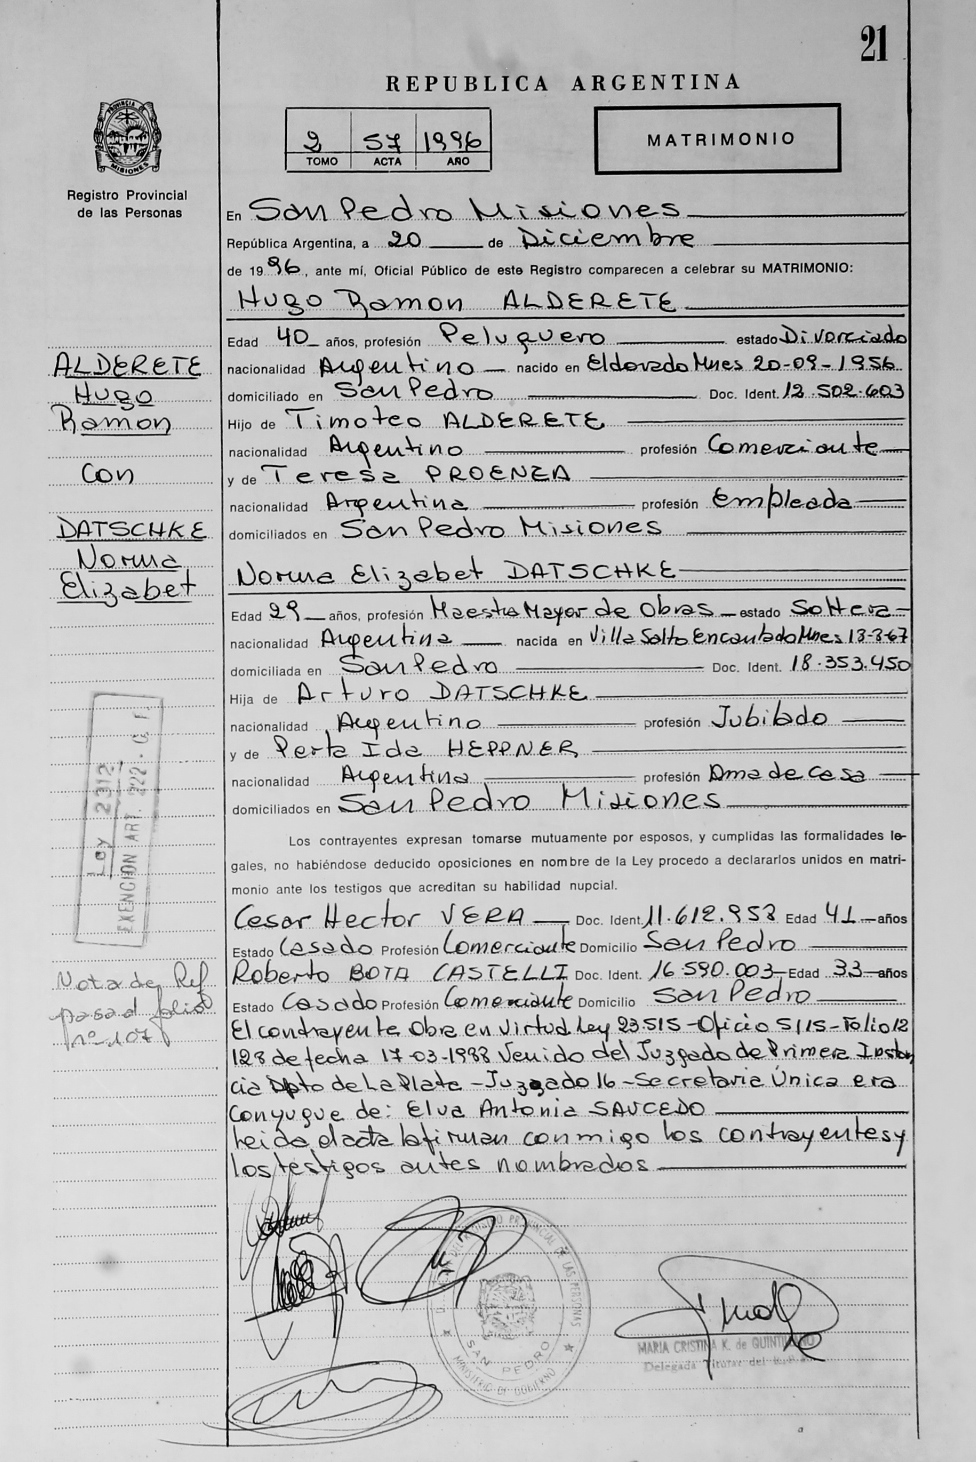 21
REPUBLICA ARGENTINA
PROVINCIA DE MISIONES
Registro Provincial
de las Personas
2 57 1996
TOMO ACTA AÑO
MATRIMONIO
En San Pedro Misiones
República Argentina, a 20 de Diciembre
de 1996, ante mí, Oficial Público de este Registro comparecen a celebrar su MATRIMONIO:
Hugo Ramon ALDERETE
Edad 40 años, profesión Peluquero estado Divorciado
nacionalidad Argentino nacido en Eldorado Mnes 20-09-1956
domiciliado en San Pedro Doc. Ident. 12.502.603
Hijo de Timoteo ALDERETE
nacionalidad Argentino profesión Comerciante
y de Teresa PROENEA
nacionalidad Argentina profesión Empleada
domiciliados en San Pedro Misiones
Norma Elizabet DATSCHKE
Edad 29 años, profesión Maestra Mayor de Obras estado Soltera
nacionalidad Argentina nacida en Villa Salto Encantado Mnes 13-8-67
domiciliada en San Pedro Doc. Ident. 18.353.450
Hija de Arturo DATSCHKE
nacionalidad Argentino profesión Jubilado
y de Perla Ida HEPPNER
nacionalidad Argentina profesión Ama de Casa
domiciliados en San Pedro Misiones
Los contrayentes expresan tomarse mutuamente por esposos, y cumplidas las formalidades le-
gales, no habiéndose deducido oposiciones en nombre de la Ley procedo a declararlos unidos en matri-
monio ante los testigos que acreditan su habilidad nupcial.
Cesar Hector VERA Doc. Ident. 11.612.958 Edad 41 años
Estado Casado Profesión Comerciante Domicilio San Pedro
Roberto BOTA CASTELLI Doc. Ident. 16.590.003 Edad 33 años
Estado Casado Profesión Comerciante Domicilio San Pedro
El contrayente Obra en Virtud Ley 23.515-Oficio 5115-Folio 12
128 de fecha 17-03-1988 Venido del Juzgado de Primera Instan
cia Dpto de La Plata-Juzgado 16-Secretaria Única era
Conyugue de: Elva Antonia SAUCEDO
leida el acta la firman conmigo los contrayentes y
los testigos antes nombrados
ALDERETE
Hugo
Ramon
con
DATSCHKE
Norma
Elizabet
Ley 2312
EXENCION ART. 222
Nota de Ref
pasa al folio
nº 107
REGISTRO PROVINCIAL DE LAS PERSONAS
SAN PEDRO
MINISTERIO DE GOBIERNO
MARIA CRISTINA K. de
Delegada Titular del